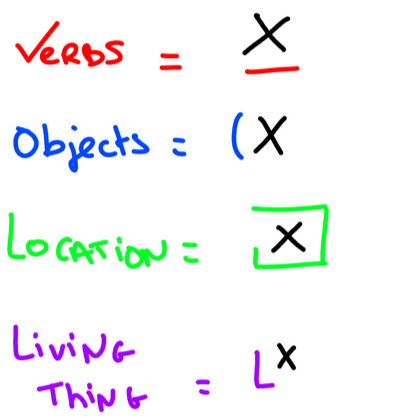 VERBS = X
Objects = (X
LOCATION = X
LiViNG
THiNG = L^X